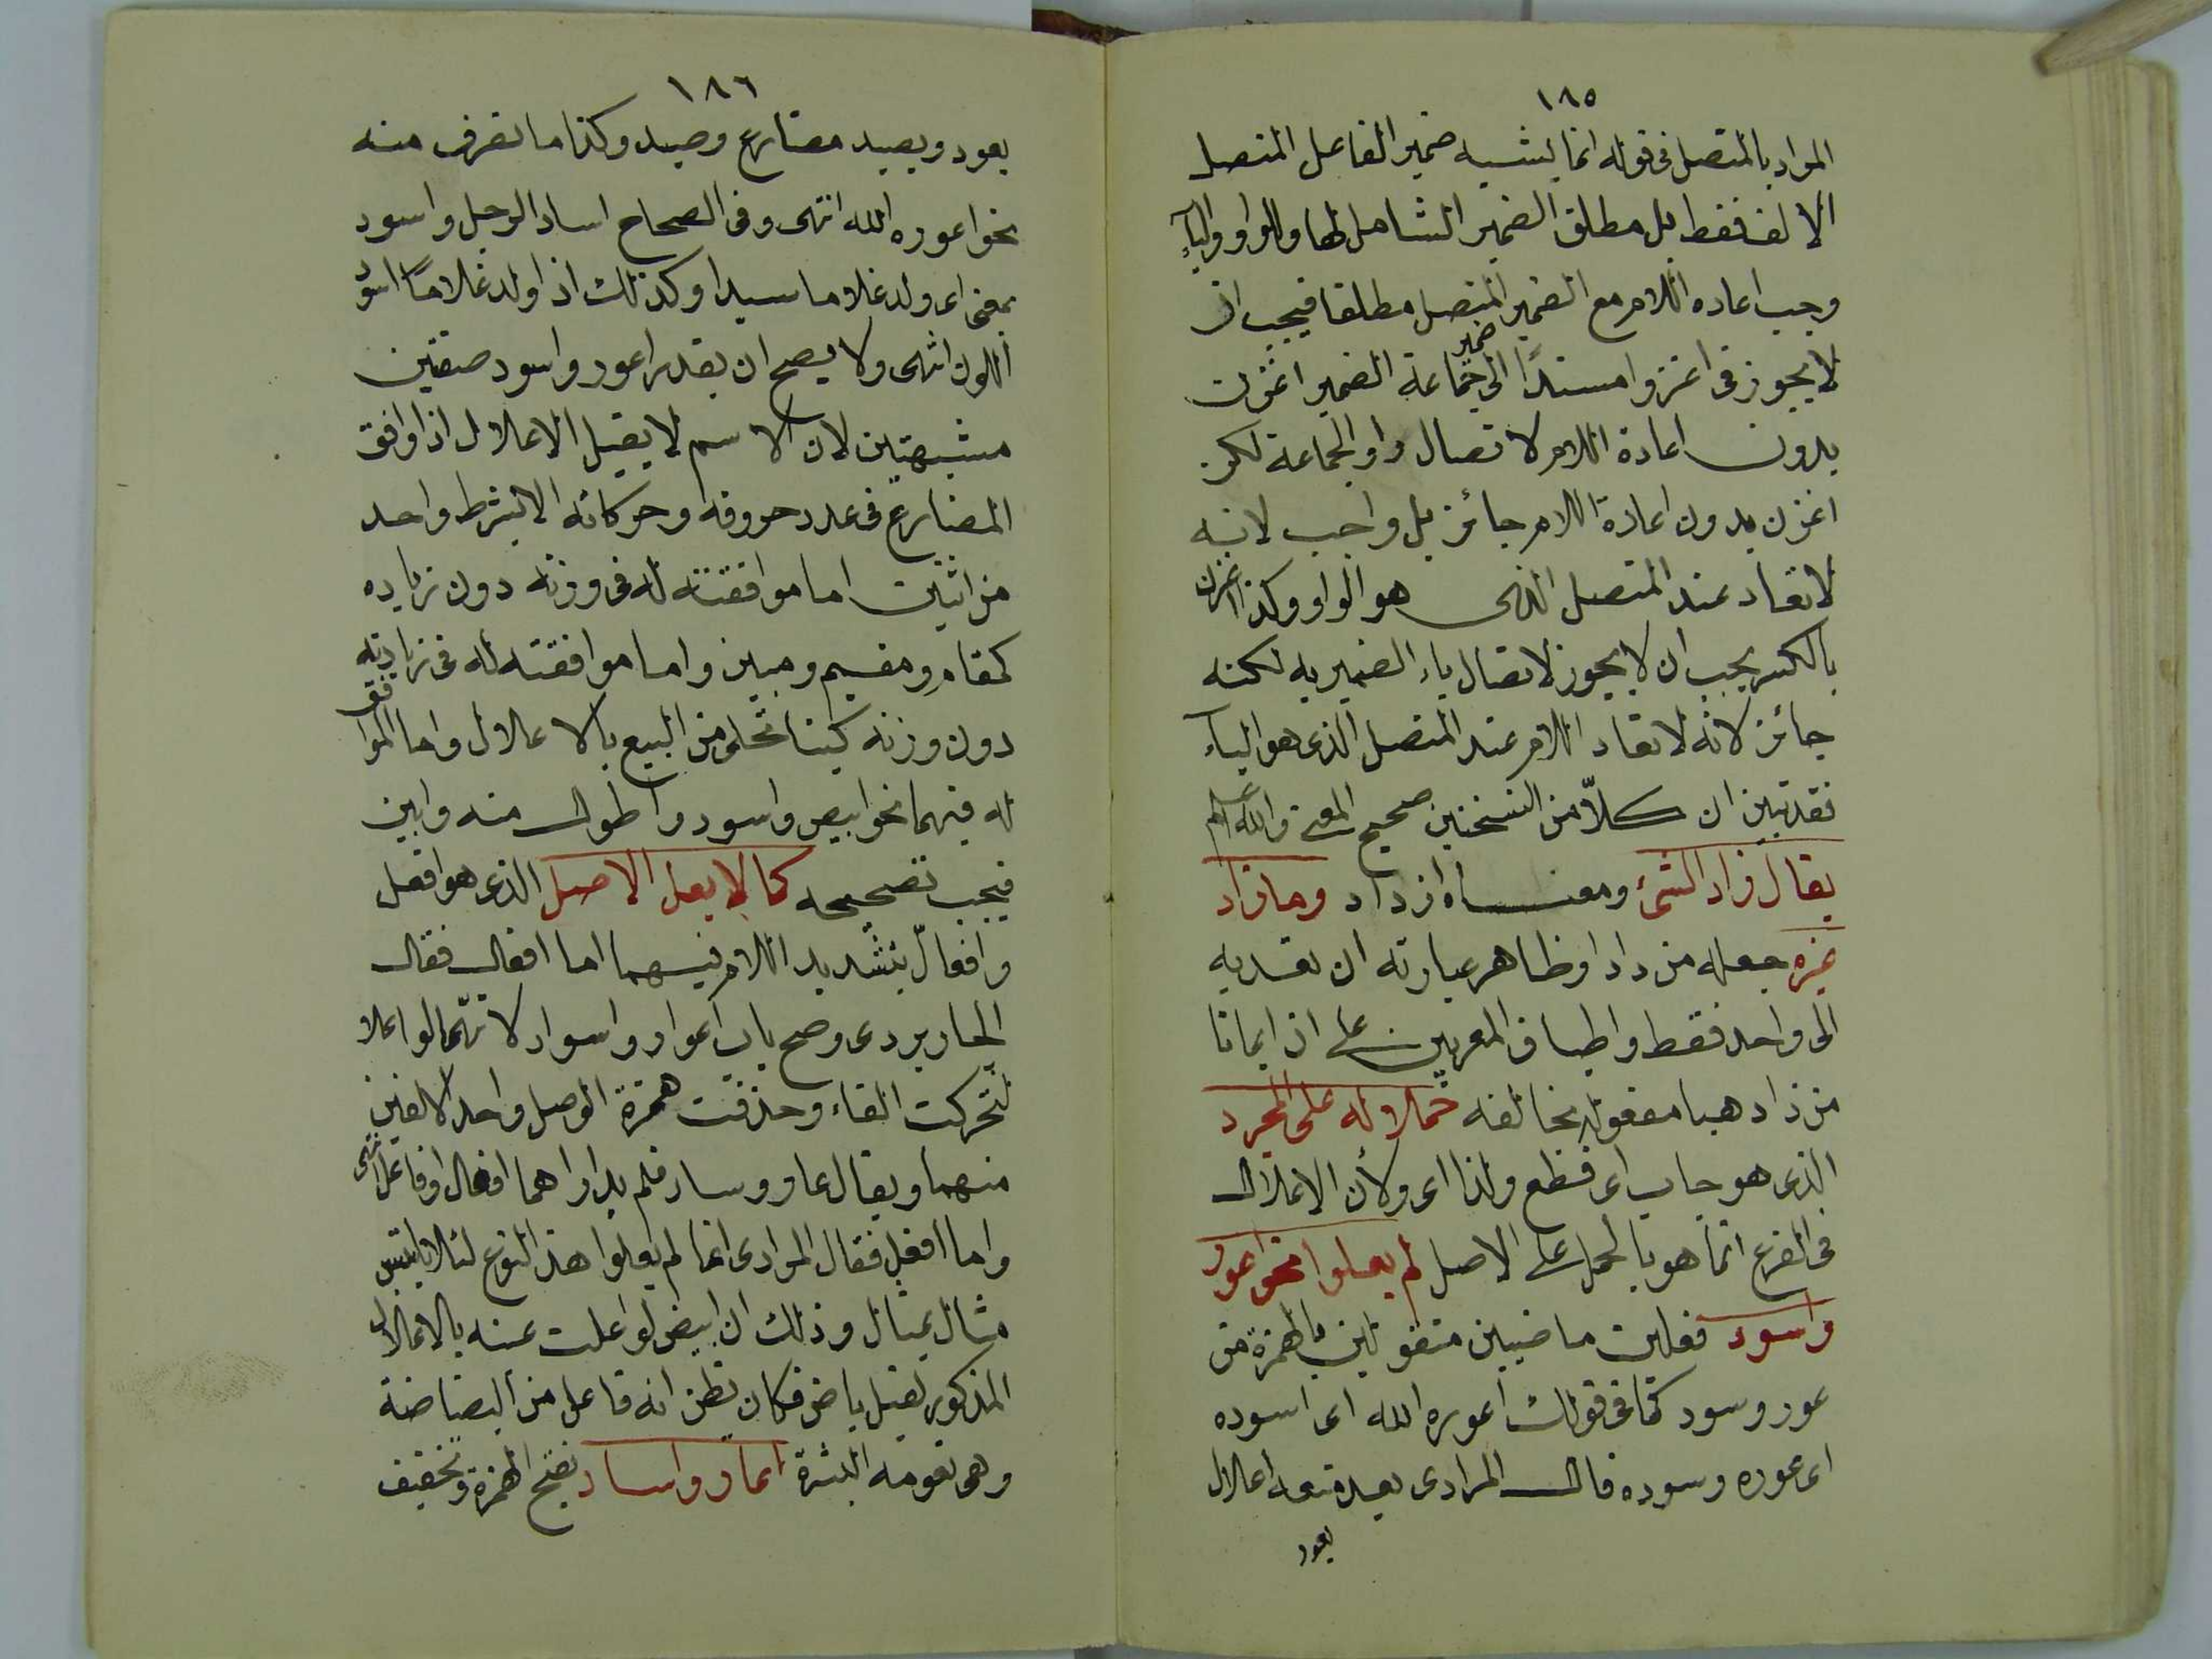 ١٨٥
المراد بالمتصل فى قوله انما يشبه ضمير الفاعل المتصل
الالف فقط بل مطلق الضمير الشامل لها وللواو والياء
وجب اعاده اللام مع الضمير المتصل مطلقا فيجب ان
لا يجوز فى اغزوا مسندًا الى ضمير جماعة الضمير اغزن
بدون اعادة اللام لاتصال واو الجماعة لكن
اغزن بدون اعادة اللام جائز بل واجب لانه
لا تعاد عند المتصل الذى هو الواو وكذا اغزن
بالكسر يجب ان لا يجوز لاتصال ياء الضمير به لكنه
جائز لانه لا تعاد اللام عند المتصل الذى هو الياء
فقد تبين ان كلاّ من النسختين صحيح المعنى والله اعلم
يقال زاد الشئ ومعناه ازداد وما زاد
غيره جعله من داد او ظاهر عبارته ان تعديه
الى واحد فقط واطباق المعربين على ان ايمانا
من زادهم ايمانا مفعول يخالفه حملا له على المجرد
الذى هو جاب اى قطع ولذا اى ولأن الاعلال
فى الفرع انما هو بالحمل على الاصل لم يعلوا نحو اعور
واسود فعلين ماضيين منقولين بالهمزة من
عور وسود كما فى قولك اعوره الله اى اسوده
اى عوره وسوده قال المرادى بعد منعه اعلال
يعور
١٨٦
يعود ويصيد مضارع وصيد وكذا ما تصرف منه
نحو اعوره الله انتهى وفى الصحاح اساد الرجل واسود
بمعنى اى ولد غلاما سيدا وكذلك اذا ولد غلامًا اسود
اللون انتهى ولا يصح ان يقدر اعور واسود صفتين
مشبهتين لان الاسم لا يقبل الاعلال اذا وافق
المضارع فى عدد حروفه وحركاته الا بشرط واحد
من اثنين اما موافقته له فى وزنه دون زياده
كمقام ومقيم ومبين واما موافقته له فى زيادته
دون وزنه كبناء تحلئ من البيع بالاعلال واما الموافق
له فيهما نحو ابيض واسود واطول منه وابين
فيجب تصحيحه كما لا يعل الاصل الذى هو افعل
وافعالّ بتشديد اللام فيهما اما افعال فقال
الجاربردى وصح باب اعوار واسواد لانهما لو اعلا
لتحركت الفاء وحذفت همزة الوصل واحد الالفين
منهما ويقال عار وساد فلم يدر اهما افعال او فاعل انتهى
واما افعل فقال المرادى انما لم يعلوا هذا النوع لئلا يلتبس
مثال بمثال وذلك ان ابيض لو اعلت عينه بالاعلال
المذكور لقيل باض فكان يظن انه فاعل من البضاضة
وهى نعومة البشرة اعار واساد بفتح الهمزة وتخفيف